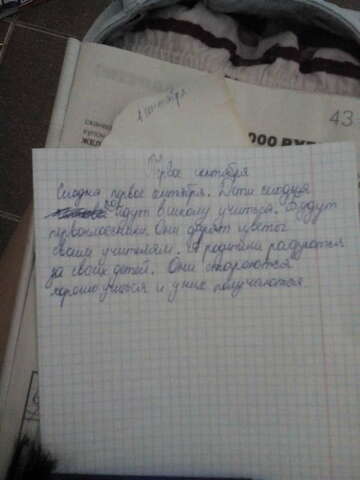 1 сентября
43
000 РУБ
Первое сентября
Сиодня первое сентября. Дети сиодня
пойдут в школу учиться. Будут
первоклассники. Они дарят цветы
своим учителям. А родители радуются
за своих детей. Они стораются
хорошо учиться и у них получаются